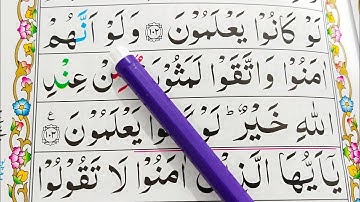 لَوْ كَانُوْا يَعْلَمُوْنَ ﴿۱۰۲﴾ وَلَوْ اَنَّهُمْ
اٰمَنُوْا وَاتَّقَوْا عِنْدِ
اللّٰهِ خَيْرٌ ؕ لَوْ يَعْلَمُوْنَ ﴿۱۰۳﴾ ع
يٰۤاَيُّهَا الَّذِيْنَ اٰمَنُوْا لَا تَقُوْلُوْا